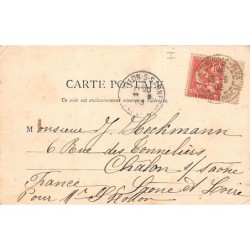 CARTE POSTALE
Ce côté est exclusivement réservé à l'adresse
Monsieur J. Heckmann
6 Rue des Tonneliers
Chalon s/ saône
France Saone et Loire
Pour Mr